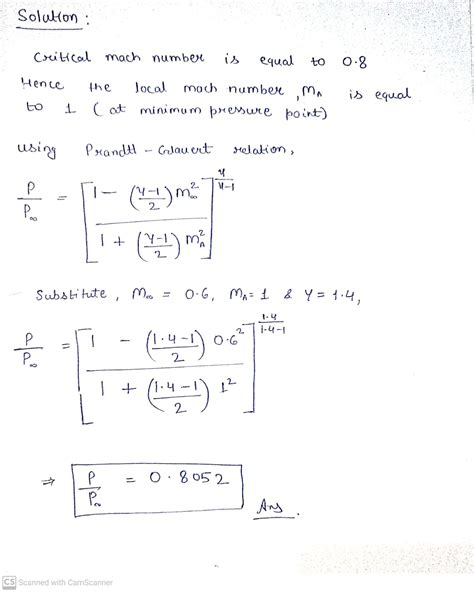 Solution :
Critical mach number is equal to 0.8
Hence the local mach number, M_A is equal
to 1 (at minimum pressure point)
using Prandtl - Glauert relation,
P/P∞ = [ (1 - ((γ-1)/2) M∞²) / (1 + ((γ-1)/2) M_A²) ]^(γ/(γ-1))
Substitute, M∞ = 0.6, M_A = 1 & γ = 1.4,
P/P∞ = [ (1 - ((1.4-1)/2) 0.6²) / (1 + ((1.4-1)/2) 1²) ]^(1.4/(1.4-1))
⇒ P/P∞ = 0.8052
Ans.
CS Scanned with CamScanner